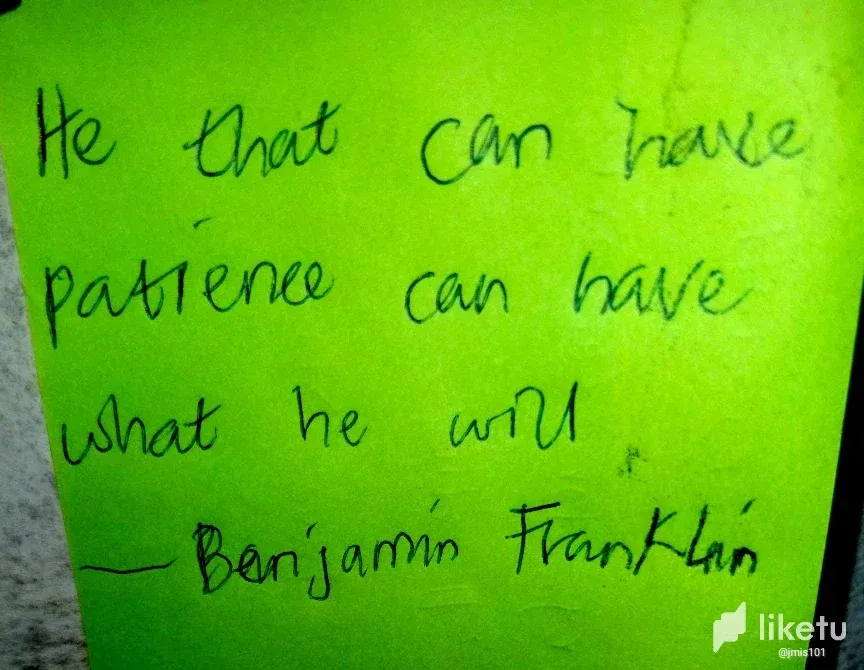 He that can have
patience can have
what he will
— Benjamin Franklin
liketu
@jmis101